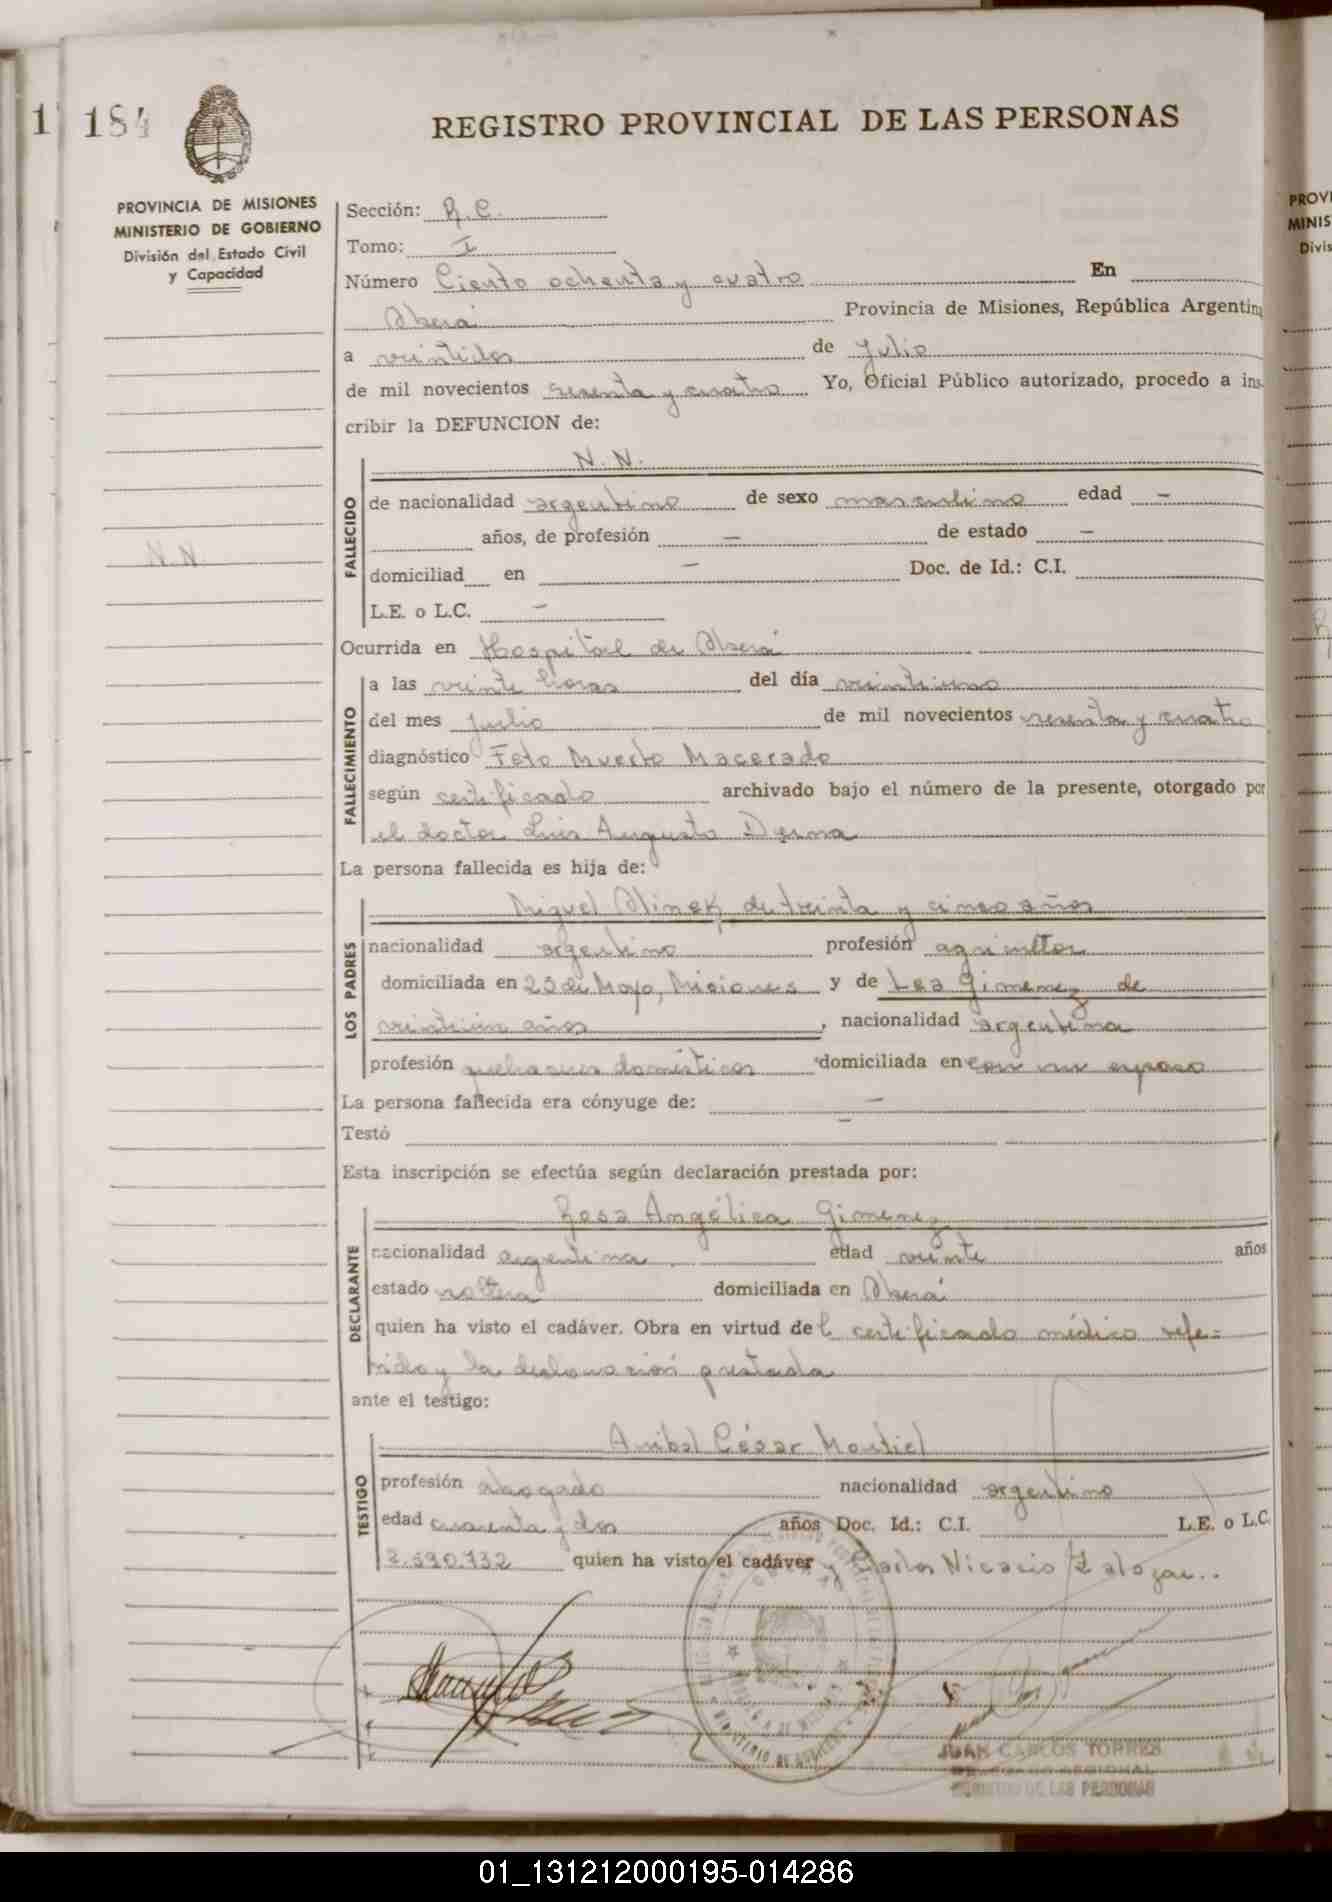 1 184
REGISTRO PROVINCIAL DE LAS PERSONAS
PROVINCIA DE MISIONES
MINISTERIO DE GOBIERNO
División del Estado Civil
y Capacidad
N.N.
Sección: R.C.
Tomo: I
Número Ciento ochenta y cuatro En
Oberá Provincia de Misiones, República Argentina
a veintidos de Julio
de mil novecientos sesenta y cuatro Yo, Oficial Público autorizado, procedo a ins-
cribir la DEFUNCION de:
N. N.
FALLECIDO
de nacionalidad argentino de sexo masculino edad —
años, de profesión — de estado —
domiciliad en — Doc. de Id.: C.I.
L.E. o L.C. —
Ocurrida en Hospital de Oberá
FALLECIMIENTO
a las veinte horas del día veintiuno
del mes Julio de mil novecientos sesenta y cuatro
diagnóstico Feto Muerto Macerado
según certificado archivado bajo el número de la presente, otorgado por
el doctor Luis Augusto Derna
La persona fallecida es hija de:
LOS PADRES
Miguel Olinek, de treinta y cinco años
nacionalidad argentino profesión agricultor
domiciliada en 25 de Mayo, Misiones y de Lea Gimenez de
veintiún años, nacionalidad argentina
profesión quehaceres domésticos domiciliada en con su esposo
La persona fallecida era cónyuge de: —
Testó —
Esta inscripción se efectúa según declaración prestada por:
DECLARANTE
Rosa Angélica Gimenez
nacionalidad argentina edad veinte años
estado soltera domiciliada en Oberá
quien ha visto el cadáver. Obra en virtud del certificado médico refe=
rido y la declaración prestada
ante el testigo:
TESTIGO
Anibal César Montiel
profesión abogado nacionalidad argentino
edad cuarenta y dos años Doc. Id.: C.I. L.E. o L.C.
2.590.732 quien ha visto el cadáver y Carlos Nicacio Zalazar..
JUAN CARLOS TORRES
DELEGADO REGIONAL
REGISTRO DE LAS PERSONAS
PROVI
MINIS
Divis
01_131212000195-014286